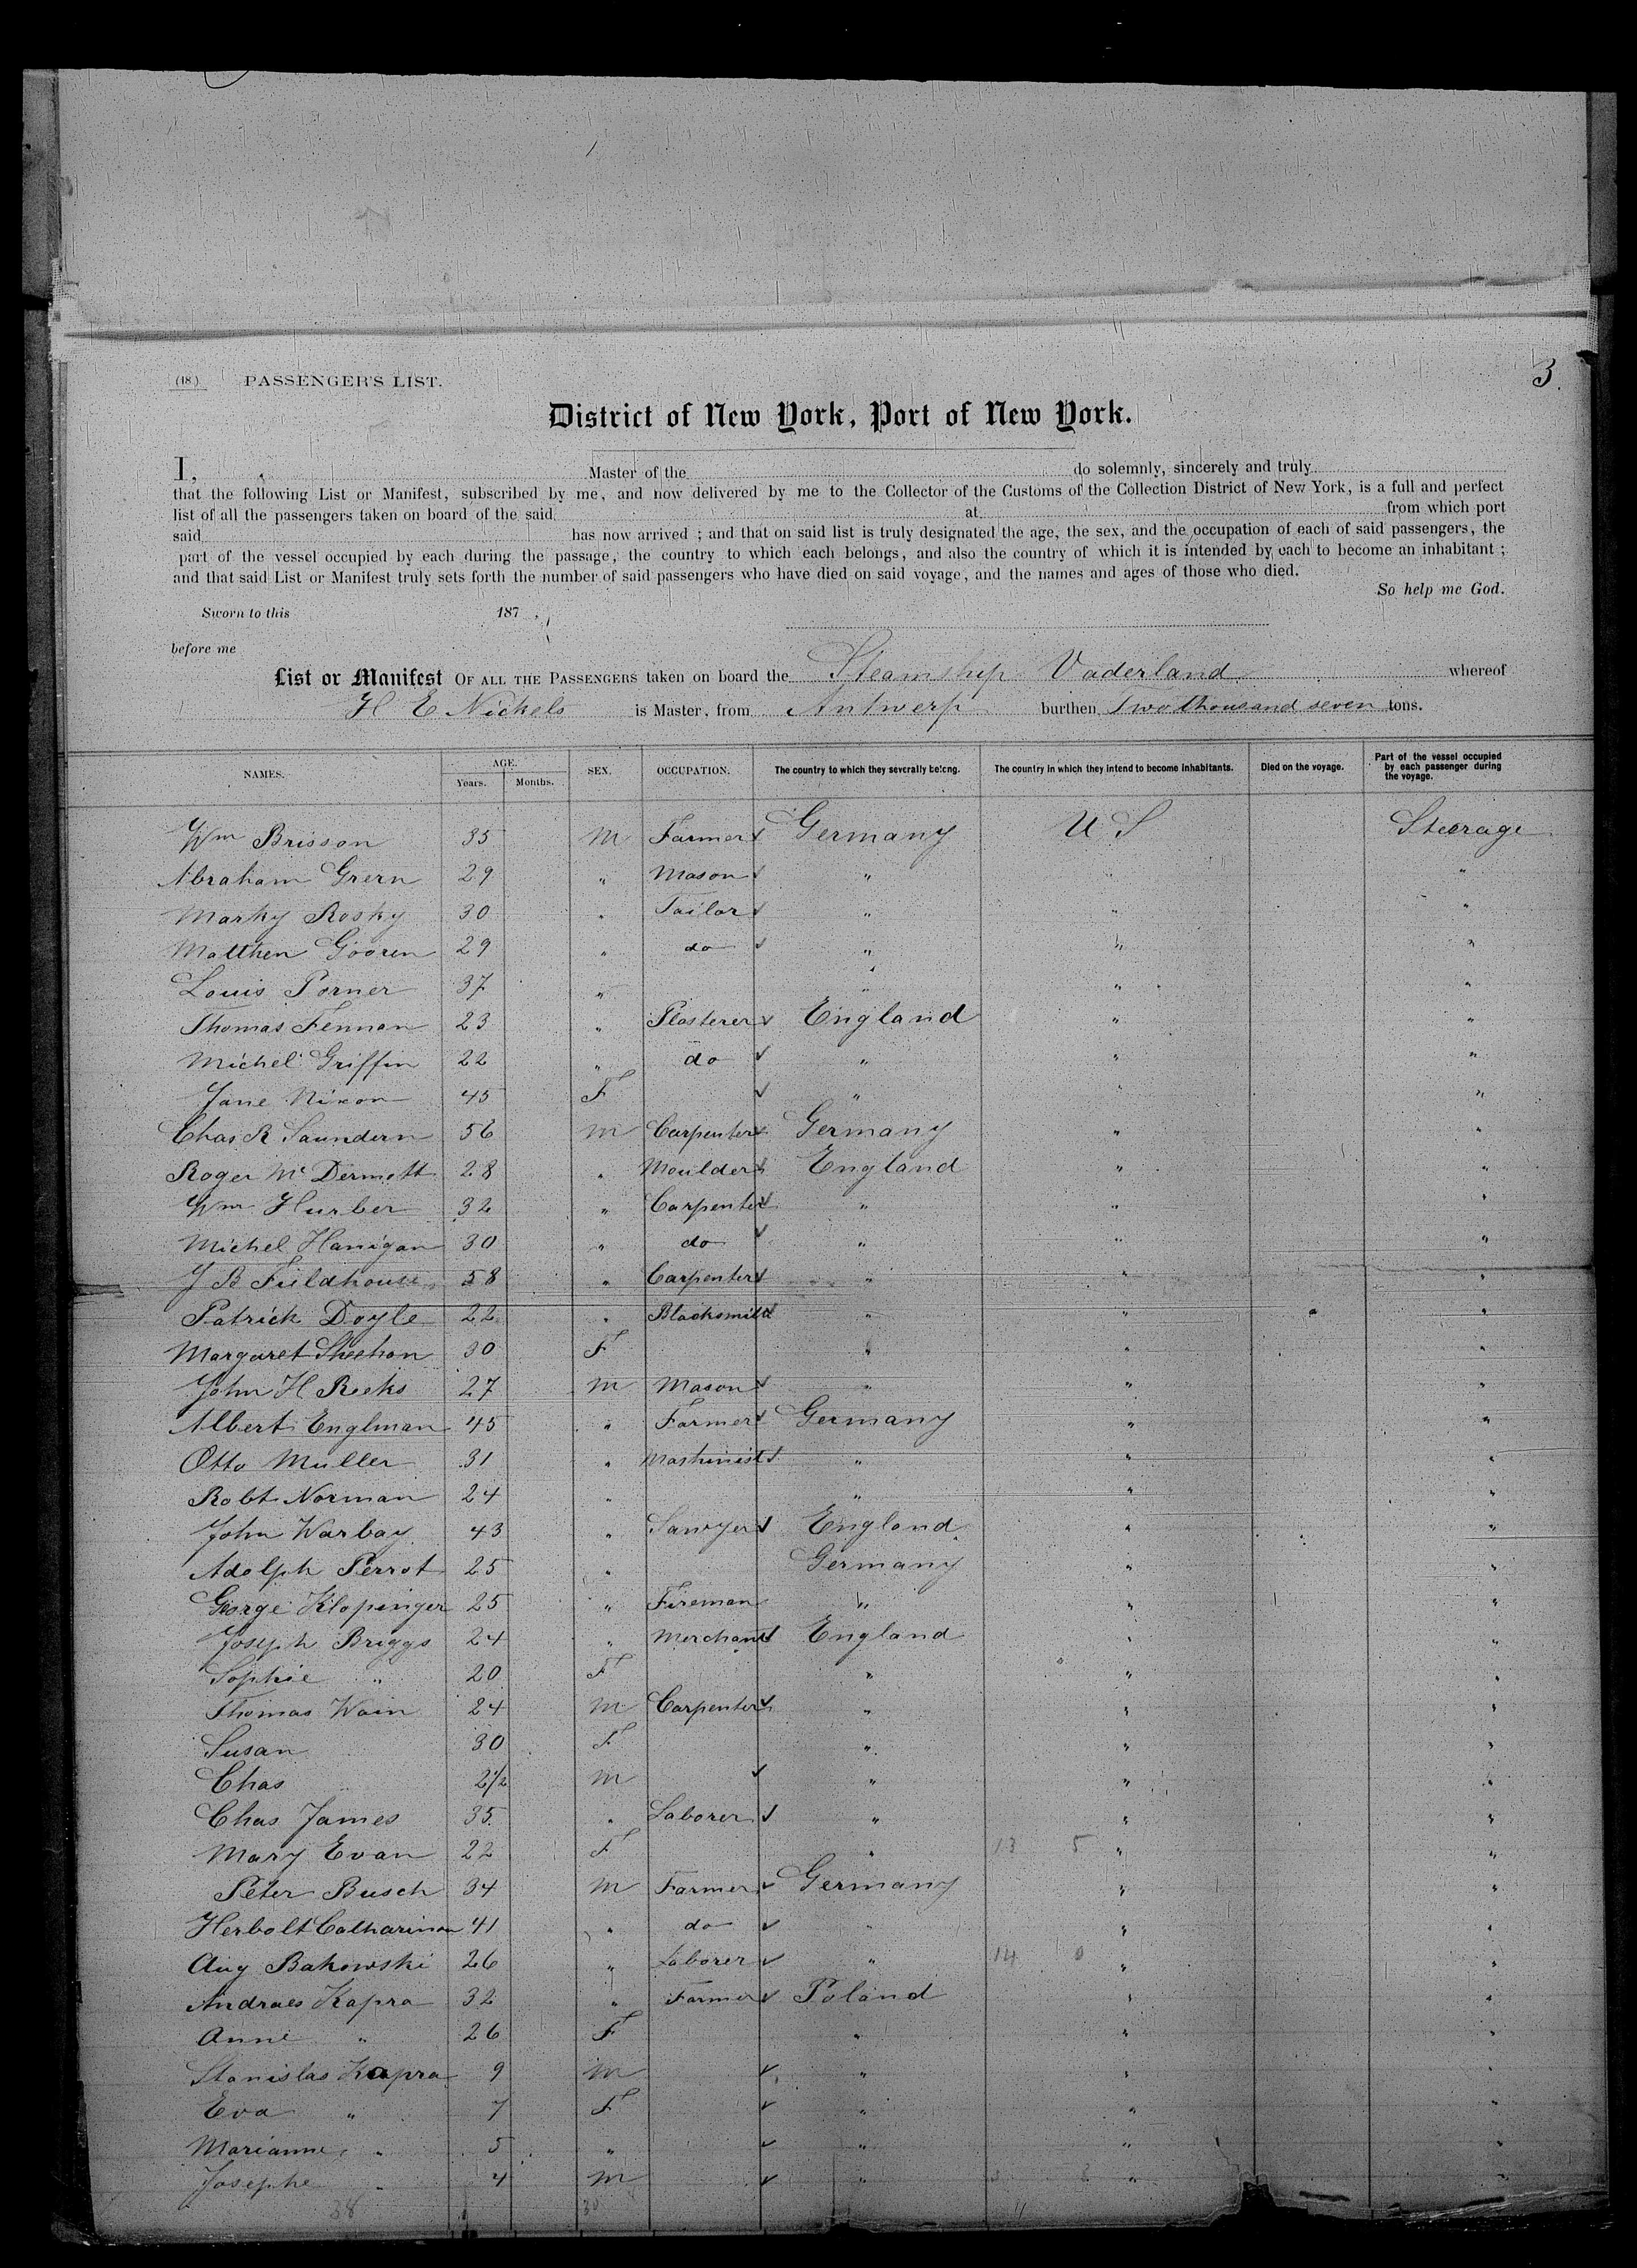 (18) PASSENGER'S LIST. 3.
District of New York, Port of New York.
I, Master of the do solemnly, sincerely and truly
that the following List or Manifest, subscribed by me, and now delivered by me to the Collector of the Customs of the Collection District of New York, is a full and perfect
list of all the passengers taken on board of the said at from which port
said has now arrived ; and that on said list is truly designated the age, the sex, and the occupation of each of said passengers, the
part of the vessel occupied by each during the passage, the country to which each belongs, and also the country of which it is intended by each to become an inhabitant ;
and that said List or Manifest truly sets forth the number of said passengers who have died on said voyage, and the names and ages of those who died.
So help me God.
Sworn to this 187
before me
List or Manifest OF ALL THE PASSENGERS taken on board the Steamship Vaderland whereof
H E Nickels is Master, from Antwerp burthen Two thousand seven tons.
NAMES. AGE. Years. Months. SEX. OCCUPATION. The country to which they severally belong. The country in which they intend to become inhabitants. Died on the voyage. Part of the vessel occupied by each passenger during the voyage.
Wm Brisson 35 M Farmer Germany U S Steerage
Abraham Grern 29 " Mason " " "
Marky Rosky 30 " Tailor " " "
Matthen Gooren 29 " do " " "
Louis Porner 37 " " " "
Thomas Fennan 23 " Plasterer England " "
Michel Griffin 22 " do " " "
Jane Nixon 45 F " " "
Chas R Saundern 56 M Carpenter Germany " "
Roger Mc Dermott 28 " Moulder England " "
Wm Hurber 32 " Carpenter " " "
Michel Hanigan 30 " do " " "
J B Fieldhouse 58 " Carpenter " " "
Patrick Doyle 22 " Blacksmith " " "
Margaret Sheehan 30 F " " "
John H Reeks 27 M Mason " " "
Albert Englman 45 " Farmer Germany " "
Otto Muller 31 " Mashinist " " "
Robt Norman 24 " " " "
John Warbay 43 " Sawyer England " "
Adolph Perrot 25 " Germany " "
George Klopinger 25 " Fireman " " "
Joseph Briggs 24 " Merchant England " "
Sophie " 20 F " " "
Thomas Wain 24 M Carpenter " " "
Susan 30 F " " "
Chas 2 1/2 M " " "
Chas James 35 " Laborer " " "
Mary Evan 22 F " 13 5 " "
Peter Busch 34 M Farmer Germany " "
Herbolt Catharinan 41 " do " " "
Aug Bakowski 26 " Laborer " 14 0 " "
Andraes Kapra 32 " Farmer Poland " "
Anne " 26 F " " "
Stanislas Kapra 9 M " " "
Eva " 7 F " " "
Marianne " 5 " " " "
Josephe " 4 M " " "
38